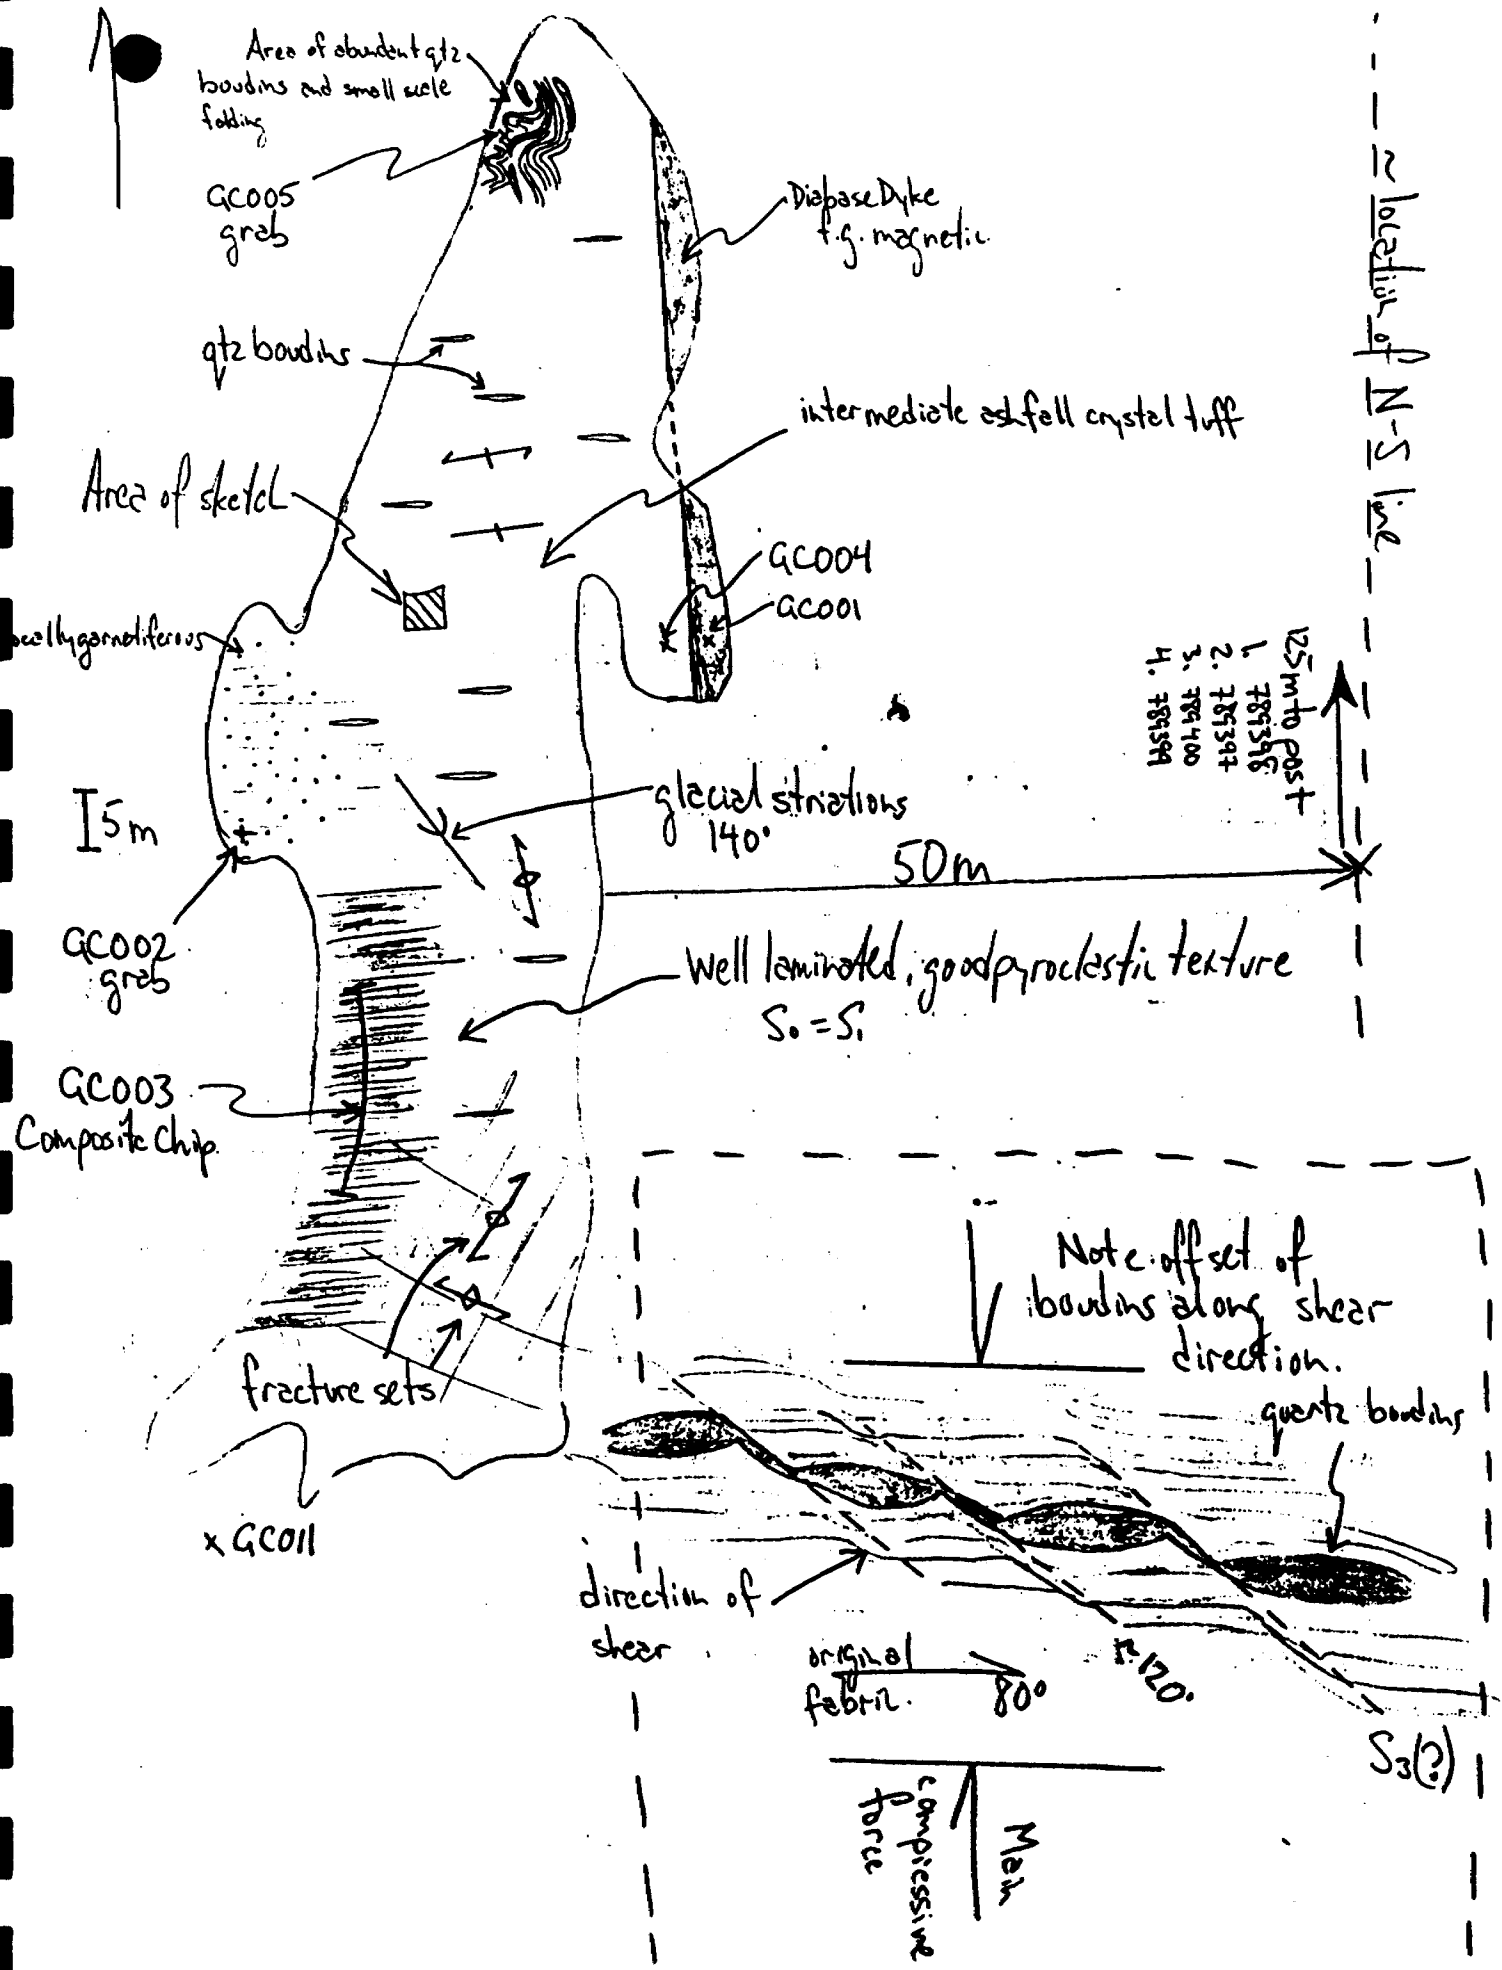 Area of abundant qtz
boudins and small scale
folding
GC005
grab
Diabase Dyke
f.g. magnetic
≈ location of N-S line
qtz boudins
intermediate ashfall crystal tuff
Area of sketch
GC004
GC001
locally garnetiferous
125m to post
1. 789398
2. 789397
3. 789400
4. 789399
5m
glacial striations
140°
50m
GC002
grab
Well laminated, good pyroclastic texture
S₀ = S₁
GC003
Composite Chip
Note offset of
boudins along shear
direction.
fracture sets
quartz boudins
x GC011
direction of
shear
original
fabric.
80°
120°
S₃(?)
Main
compressive
force